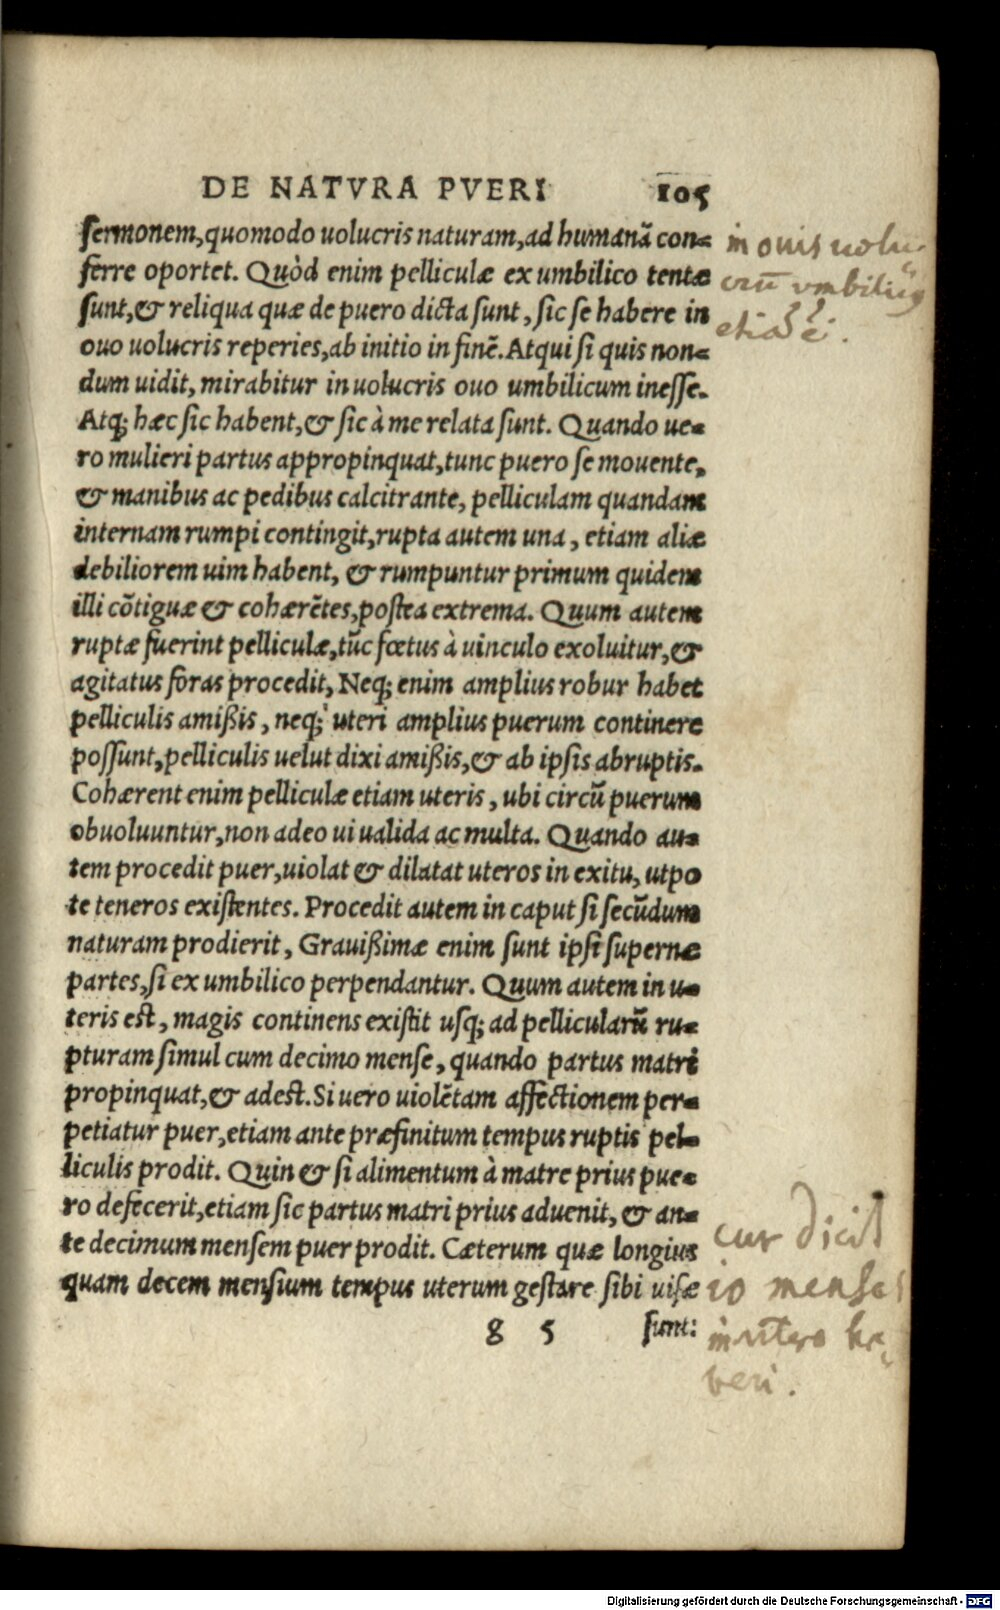 DE NATVRA PVERI 105
sermonem,quomodo uolucris naturam,ad humanā con-
ferre oportet. Quòd enim pelliculæ ex umbilico tentæ
sunt,& reliqua quæ de puero dicta sunt, sic se habere in
ouo uolucris reperies,ab initio in finē. Atqui si quis non-
dum uidit, mirabitur in uolucris ouo umbilicum inesse.
Atq; hæc sic habent,& sic à me relata sunt. Quando ue-
ro mulieri partus appropinquat,tunc puero se mouente,
& manibus ac pedibus calcitrante, pelliculam quandam
internam rumpi contingit,rupta autem una, etiam aliæ
debiliorem uim habent, & rumpuntur primum quidem
illi cōtiguæ & cohærētes,postea extrema. Quum autem
ruptæ fuerint pelliculæ,tūc fœtus à uinculo exoluitur,&
agitatus foras procedit, Neq; enim amplius robur habet
pelliculis amißis, neq; uteri amplius puerum continere
possunt,pelliculis uelut dixi amißis,& ab ipsis abruptis.
Cohærent enim pelliculæ etiam uteris, ubi circū puerum
obuoluuntur,non adeo ui ualida ac multa. Quando au-
tem procedit puer,uiolat & dilatat uteros in exitu, utpo
te teneros existentes. Procedit autem in caput si secūdum
naturam prodierit, Grauißimæ enim sunt ipsi supernæ
partes,si ex umbilico perpendantur. Quum autem in u-
teris est, magis continens existit usq; ad pellicularū ru-
pturam simul cum decimo mense, quando partus matri
propinquat,& adest. Si uero uiolētam affectionem per-
petiatur puer,etiam ante præfinitum tempus ruptis pel-
liculis prodit. Quin & si alimentum à matre prius pue-
ro defecerit,etiam sic partus matri prius aduenit, & an-
te decimum mensem puer prodit. Cæterum quæ longius
quam decem mensium tempus uterum gestare sibi uisæ
g 5 sunt:
in ouis uolu
crū vmbilicus
cur dicit
10 menses
in utero
beri.
Digitalisierung gefördert durch die Deutsche Forschungsgemeinschaft - DFG